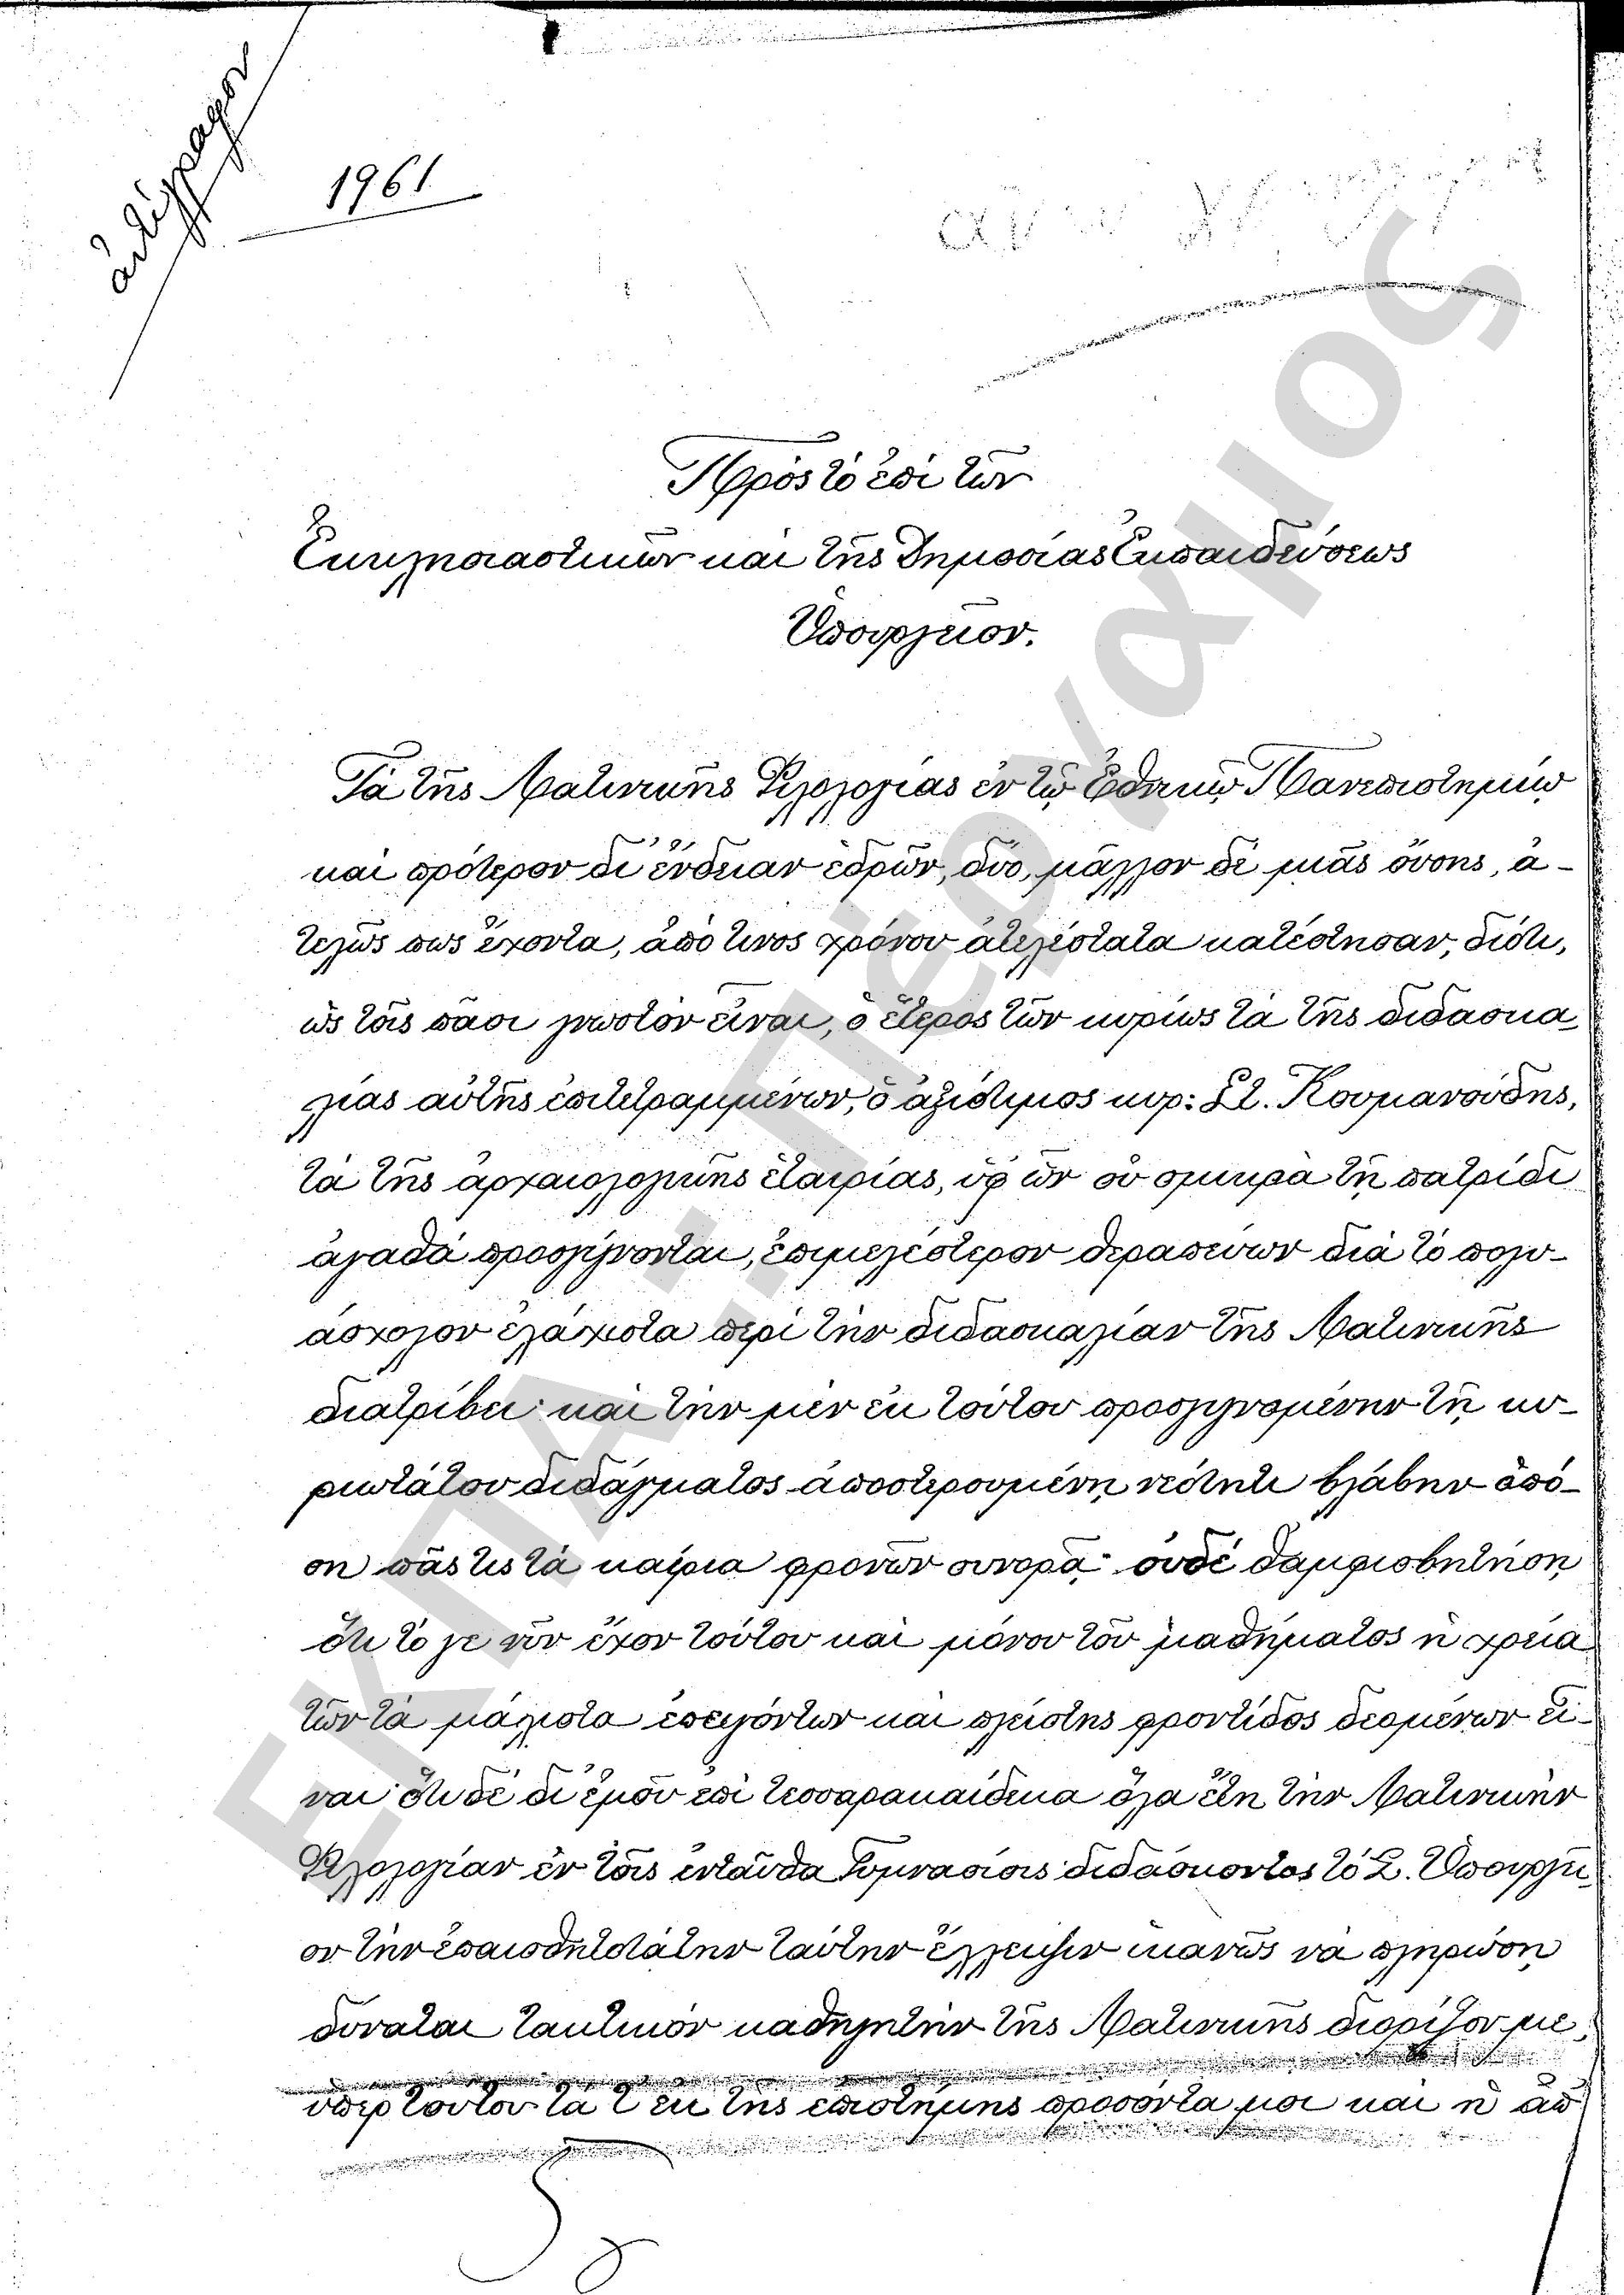 ἀντίγραφον
1961
Πρὸς τὸ ἐπὶ τῶν
Ἐκκλησιαστικῶν καὶ τῆς Δημοσίας Ἐκπαιδεύσεως
Ὑπουργεῖον.
Τὰ τῆς Λατινικῆς Φιλολογίας ἐν τῷ Ἐθνικῷ Πανεπιστημίῳ
καὶ πρότερον δι' ἔνδειαν ἑδρῶν, δύο, μᾶλλον δὲ μιᾶς οὔσης, ἀ-
τελῶς πως ἔχοντα, ἀπό τινος χρόνου ἀτελέστατα κατέστησαν, διότι,
ὡς τοῖς πᾶσι γνωστὸν εἶναι, ὁ ἕτερος τῶν κυρίως τὰ τῆς διδασκα
λίας αὐτῆς ἐπιτετραμμένων, ὁ ἀξιότιμος κυρ: Στ. Κουμανούδης,
τὰ τῆς ἀρχαιολογικῆς ἑταιρίας, ὑφ' ὧν οὐ σμικρὰ τῇ πατρίδι
ἀγαθὰ προσγίγνονται, ἐπιμελέστερον θεραπεύων διὰ τὸ πολυ-
άσχολον ἐλάχιστα περὶ τὴν διδασκαλίαν τῆς Λατινικῆς
διατρίβει· καὶ τὴν μὲν ἐκ τούτου προσγιγνομένην τῇ κυ-
ριωτάτου διδάγματος ἀποστερουμένῃ νεότητι βλάβην ὁπό-
ση πᾶς τις τὰ καίρια φρονῶν συνορᾷ· οὐδὲ θ' ἀμφισβητήσῃ
ὅτι τό γε νῦν ἔχον τούτου καὶ μόνου τοῦ μαθήματος ἡ χρεία
τῶν τὰ μάλιστα ἐπειγόντων καὶ πλείστης φροντίδος δεομένων εἶ-
ναι· ὅτι δὲ δι' ἐμοῦ ἐπὶ τεσσαρακαίδεκα ὅλα ἔτη τὴν Λατινικὴν
Φιλολογίαν ἐν τοῖς ἐνταῦθα Γυμνασίοις διδάσκοντος τὸ Σ. Ὑπουργεῖ
ον τὴν ἐπαισθητοτάτην ταύτην ἔλλειψιν ἱκανῶς νὰ πληρώσῃ
δύναται τακτικὸν καθηγητὴν τῆς Λατινικῆς διορίζον με,
ὑπὲρ τούτου τά τ' ἐκ τῆς ἐπιστήμης προσόντα μοι καὶ ἡ ἀπ'
ΕΚΠΑ-Πέργαμος